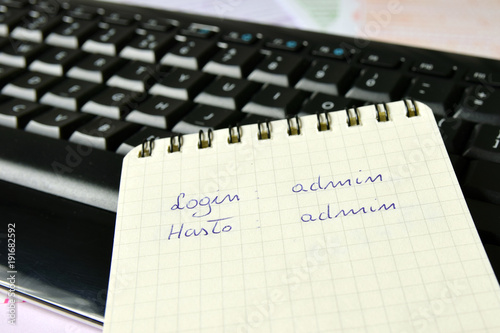 Login : admin
Hasło : admin
Adobe Stock | #191682592